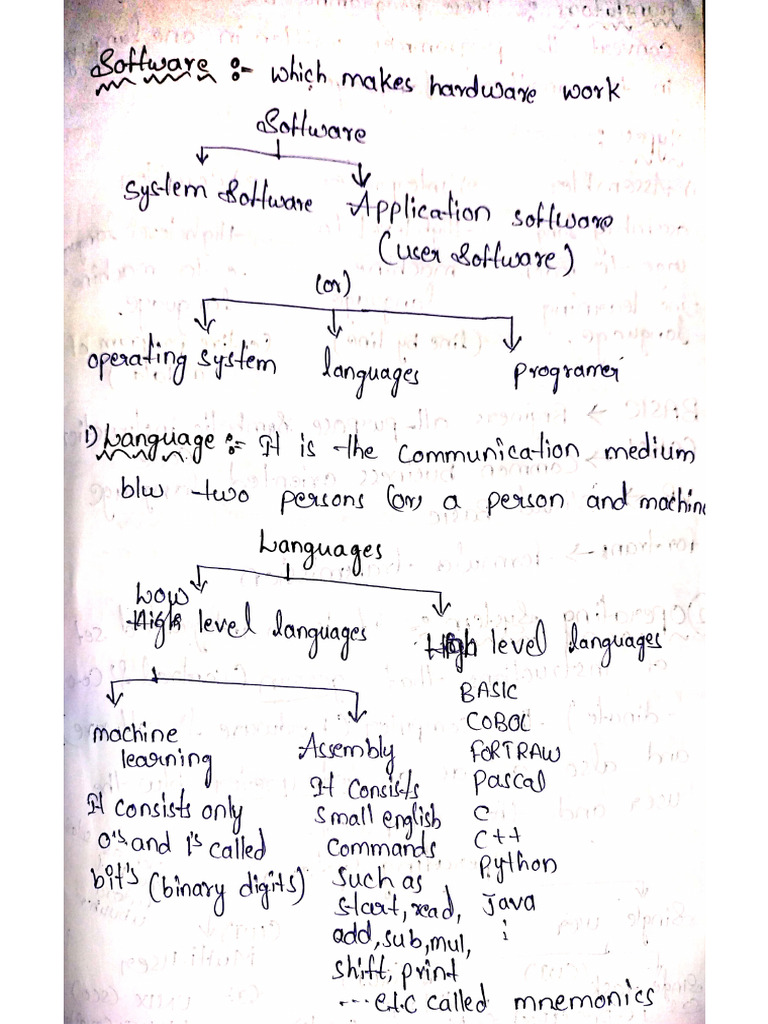 Software :- which makes hardware work
Software
System Software Application software
(user software)
(or)
operating system languages programer
1) Language :- It is the communication medium
b/w two persons (or) a person and machine
Languages
Low
High level languages High level languages
BASIC
machine
learning
COBOL
Assembly
FORTRAW
It consists
Pascal
It consists only
small english
C
0's and 1's called
commands
C++
bit's (binary digits)
such as
Python
start, read,
Java
add, sub, mul,
shift, print
....etc called mnemonics